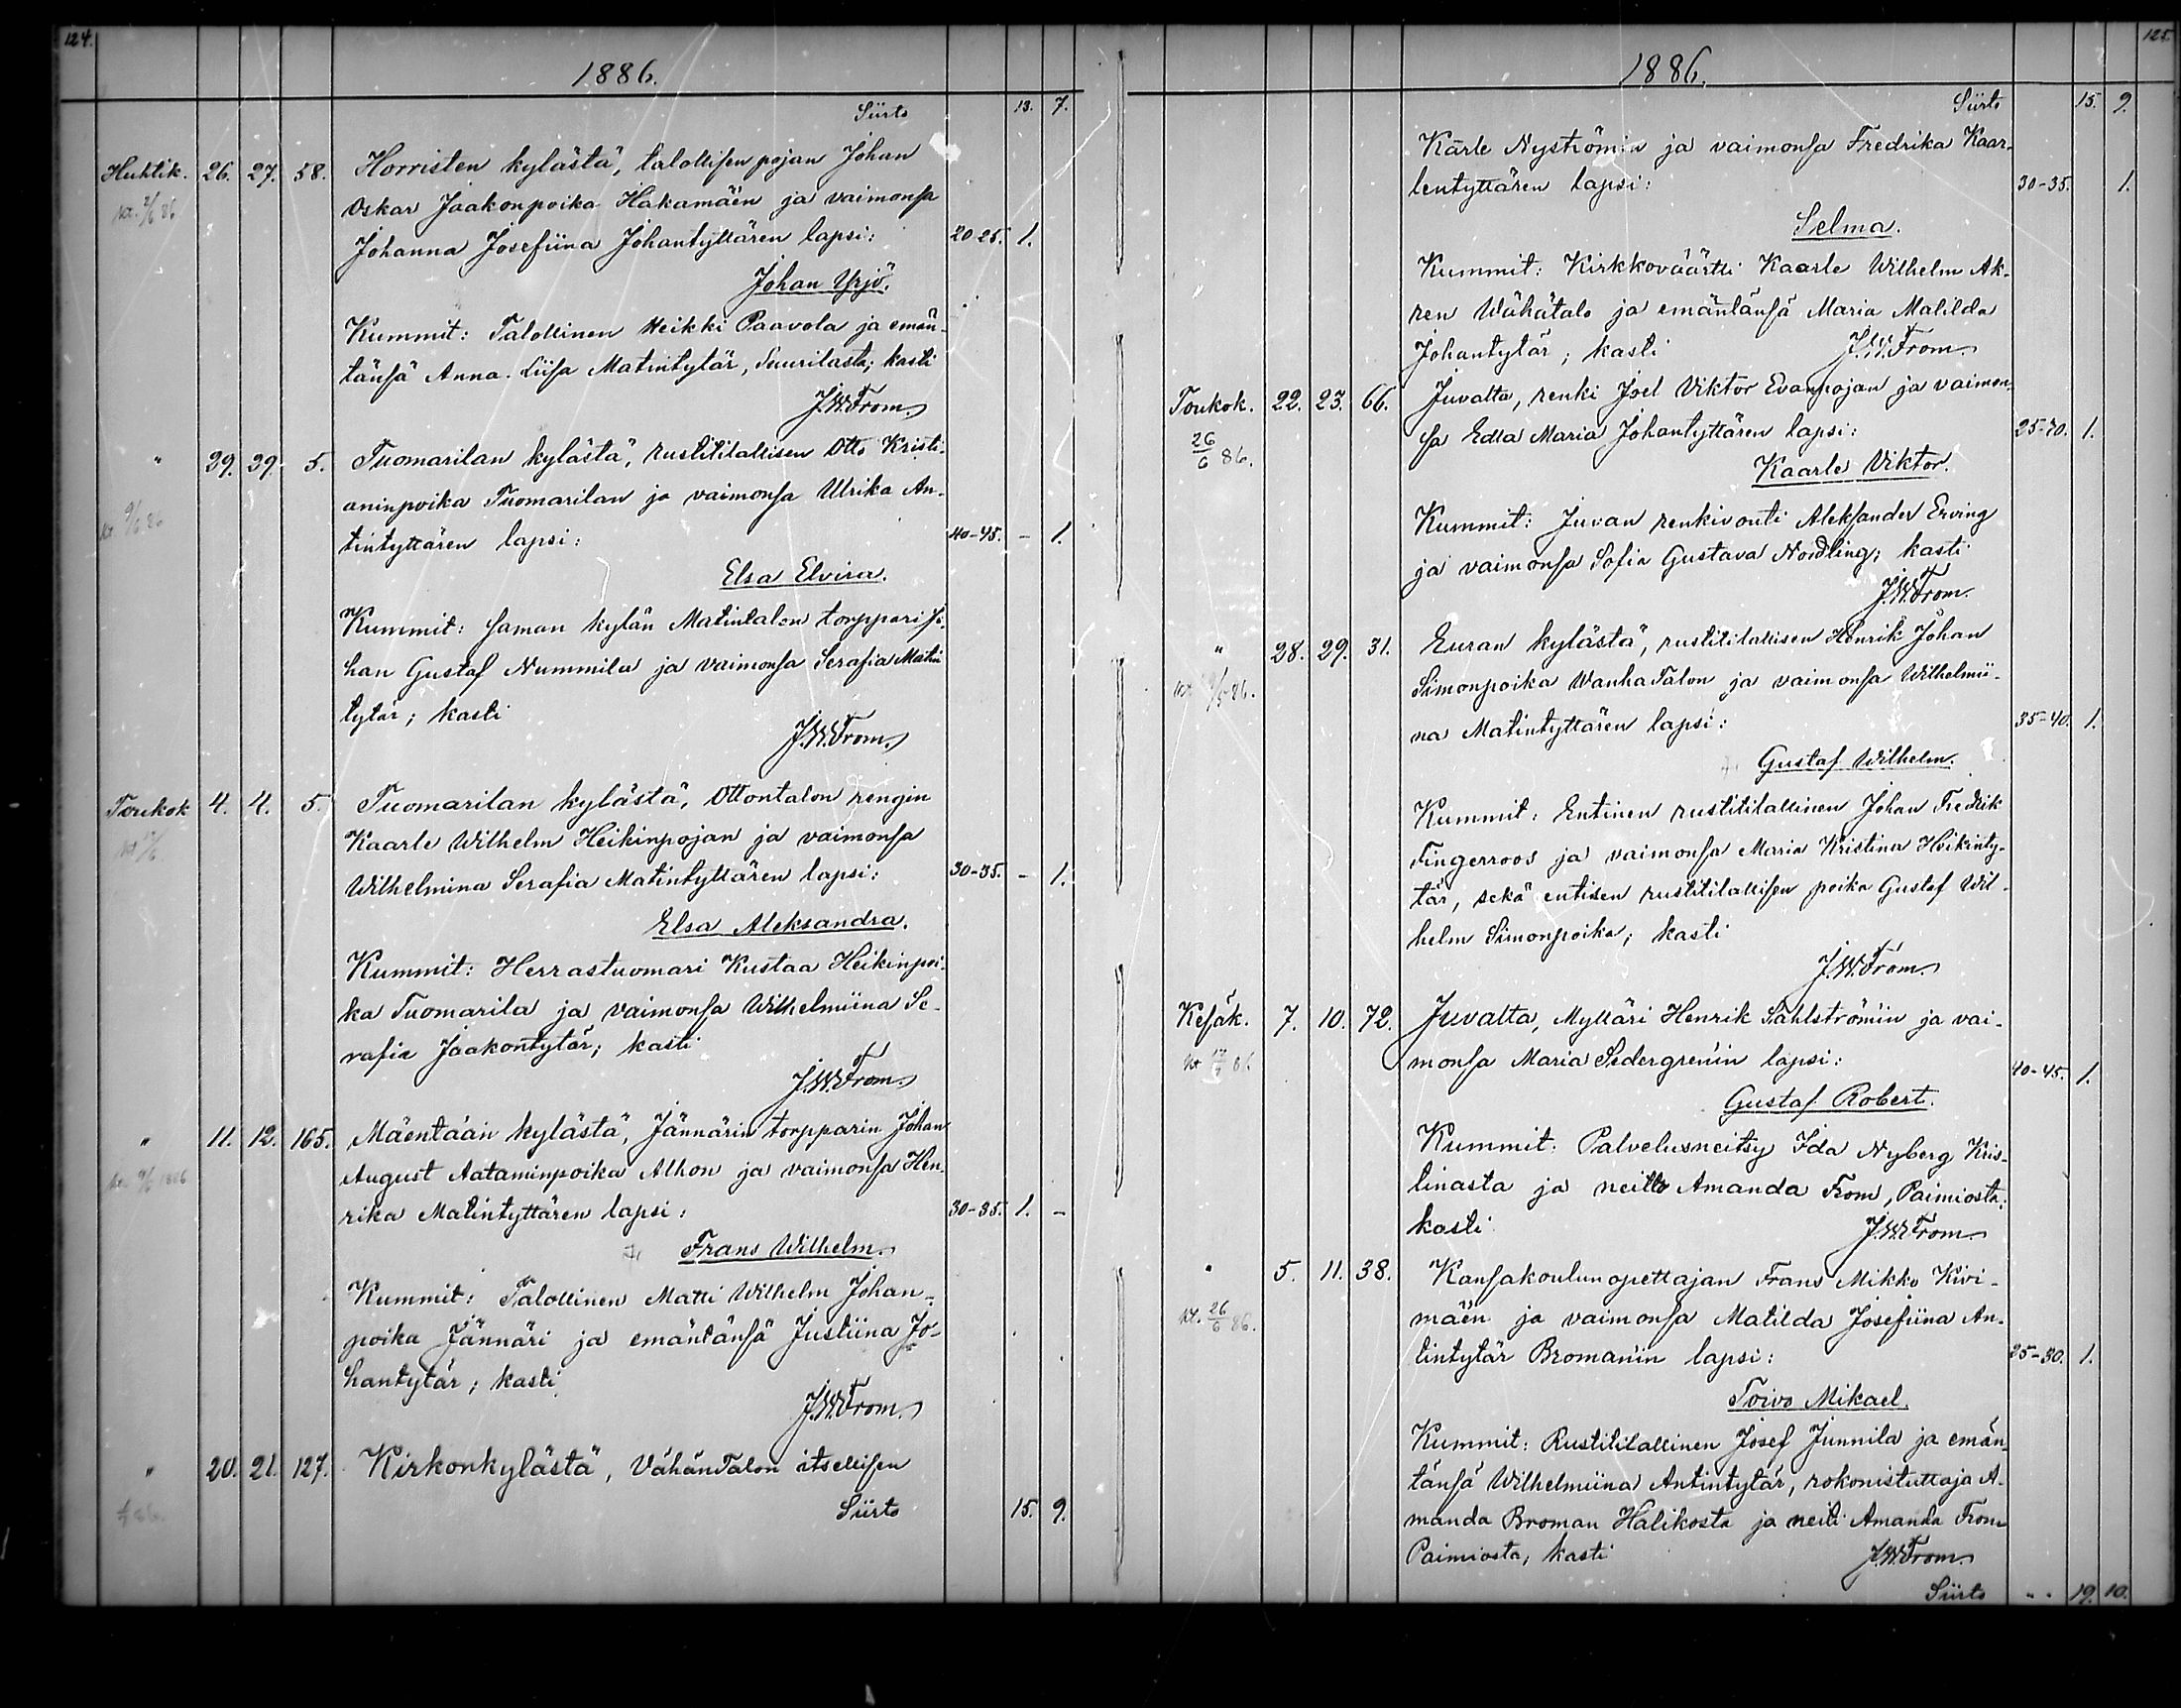 124.
1886.
Siirto 13. 7.
Huhtik. 26. 27. 58. Horristen kylästä, talollisen pojan Johan
Oskar Jaakonpoika Hakamäen ja vaimonsa
Johanna Josefiina Johantyttären lapsi: 20-25. 1.
Johan Yrjö.
Kummit: Talollinen Heikki Paavola ja emän-
tänsä Anna Liisa Matintytär, Suurilasta; kasti
J.W.From.
" 29. 29. 5. Tuomarilan kylästä, rustitilallisen Otto Kristi-
aninpoika Tuomarilan ja vaimonsa Ulrika An-
tintyttären lapsi: 40-45. - 1.
Elsa Elvira.
Kummit: saman kylän Matintalon torppari Jo-
han Gustaf Nummila ja vaimonsa Serafia Matin
tytär; kasti
J.W.From.
Toukok 4. 4. 5. Tuomarilan kylästä, Ottontalon rengin
Kaarle Wilhelm Heikinpojan ja vaimonsa
Wilhelmina Serafia Matintyttären lapsi: 30-35. - 1.
Elsa Aleksandra.
Kummit: Herrastuomari Kustaa Heikinpoi-
ka Tuomarila ja vaimonsa Wilhelmiina Se-
rafia Jaakontytär; kasti
J.W.From.
" 11. 12. 165. Mäentaan kylästä, Jännärin torpparin Johan
August Aataminpoika Alhon ja vaimonsa Hen-
rika Matintyttären lapsi: 30-35. 1. -
Frans Wilhelm.
Kummit: Talollinen Matti Wilhelm Johan-
poika Jännäri ja emäntänsä Justiina Jo-
hantytär; kasti
J.W.From.
" 20. 21. 127. Kirkonkylästä, VähänTalon itsellisen
Siirto 15. 9.
125.
1886.
Siirto 15. 9.
Kaarle Nyströmin ja vaimonsa Fredrika Kaar-
lentyttären lapsi: 30-35. 1.
Selma.
Kummit: Kirkkoväärtti Kaarle Wilhelm Ak-
ren Wähätalo ja emäntänsä Maria Matilda
Johantytär; kasti J.W.From.
Toukok. 22. 23. 66. Juvalta, renki Joel Viktor Evanpojan ja vaimon-
26/6 86. sa Edla Maria Johantyttären lapsi: 25-30. 1.
Kaarle Viktor.
Kummit: Juvan renkivouti Aleksander Erving
ja vaimonsa Sofia Gustava Nordling; kasti
J.W.From.
" 28. 29. 31. Euran kylästä, rustitilallisen Henrik Johan
Simonpoika WanhaTalon ja vaimonsa Wilhelmii-
na Matintyttären lapsi: 35-40. 1.
Gustaf Wilhelm.
Kummit: Entinen rustitilallinen Johan Fredrik
Fingerroos ja vaimonsa Maria Kristina Heikinty-
tär, sekä entisen rustitilallisen poika Gustaf Wil-
helm Simonpoika; kasti
J.W.From.
Kesäk. 7. 10. 72. Juvalta, Mylläri Henrik Sahlströmiin ja vai-
monsa Maria Sedergrenin lapsi: 40-45. 1.
Gustaf Robert.
Kummit: Palvelusneitsy Ida Nyberg Kris-
tinasta ja neitto Amanda From, Paimiosta;
kasti J.W.From.
" 5. 11. 38. Kansakoulunopettajan Frans Mikko Kivi-
kt. 26/6 86. mäen ja vaimonsa Matilda Josefiina An-
tintytär Bromanin lapsi: 25-30. 1.
Toivo Mikael.
Kummit: Rustitilallinen Josef Junnila ja emän-
tänsä Wilhelmiina Antintytär, rokonistuttaja A-
manda Broman Halikosta ja neiti Amanda From
Paimiosta; kasti J.W.From.
Siirto " " 19. 10.